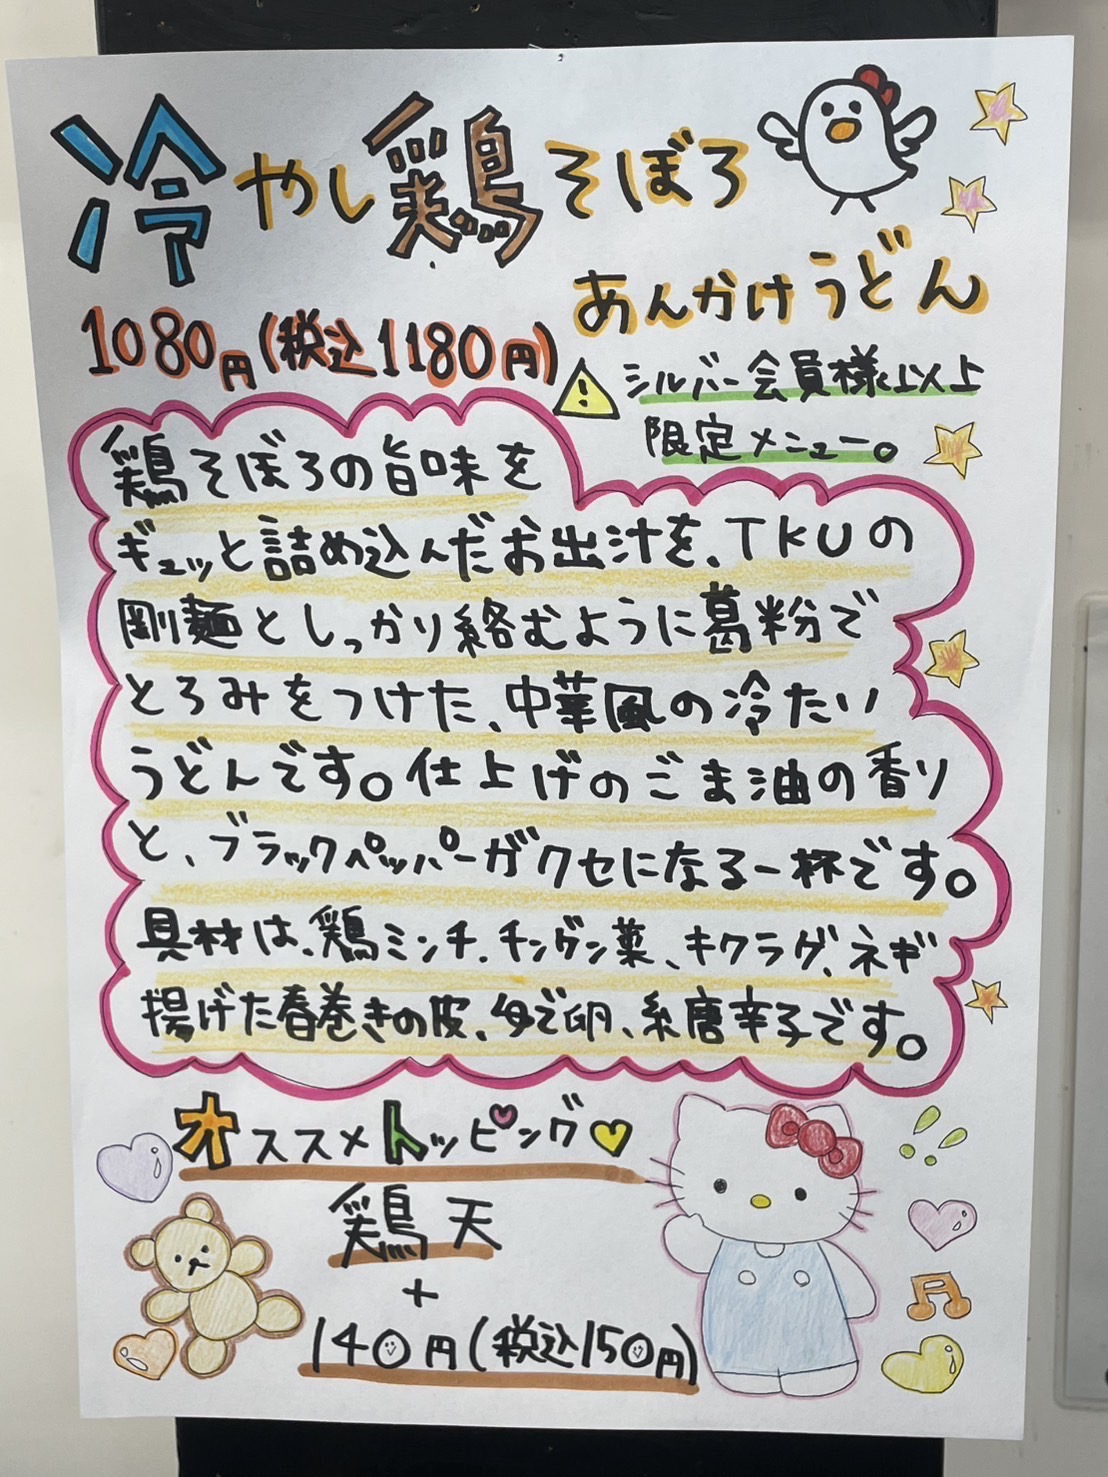 冷やし鶏そぼろ
あんかけうどん
1080円(税込1180円)
シルバー会員様以上
限定メニュー。
鶏そぼろの旨味を
ギュッと詰め込んだお出汁を、TKUの
剛麺としっかり絡むように葛粉で
とろみをつけた、中華風の冷たい
うどんです。仕上げのごま油の香り
と、ブラックペッパーがクセになる一杯です。
具材は、鶏ミンチ、チンゲン菜、キクラゲ、ネギ
揚げた春巻きの皮、ゆで卵、糸唐辛子です。
オススメトッピング
鶏天
+
140円(税込150円)